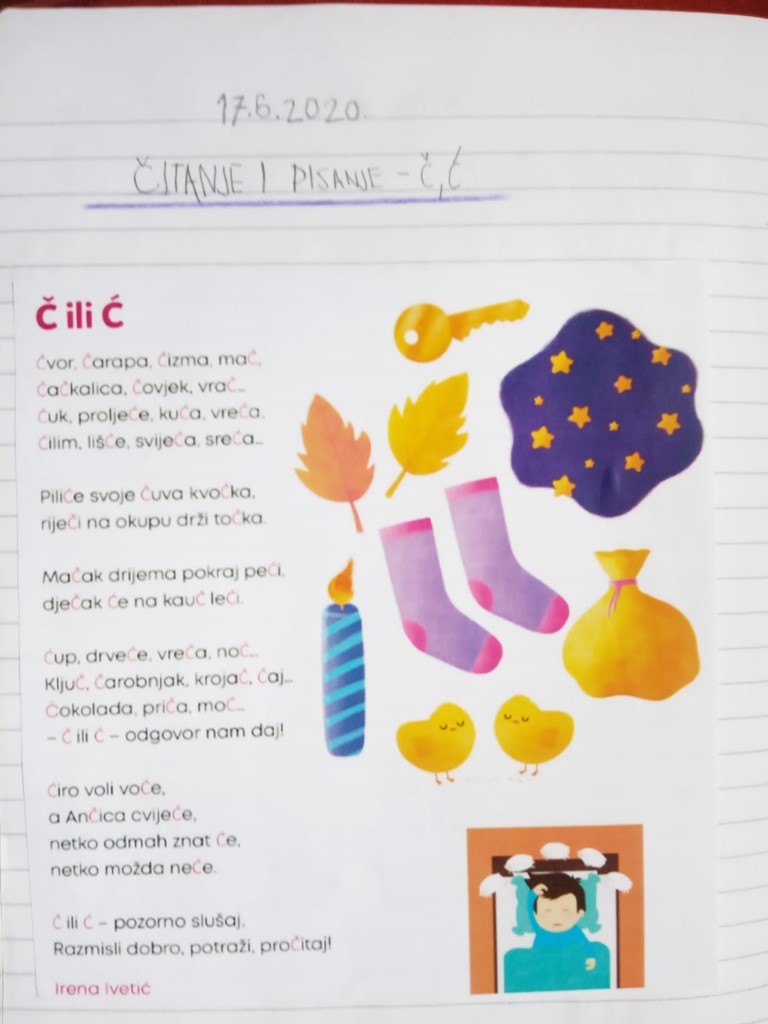 17.6.2020.
ČITANJE I PISANJE - Č, Ć
Č ili Ć
Čvor, čarapa, čizma, mač,
čačkalica, čovjek, vrač...
Ćuk, proljeće, kuća, vreća,
ćilim, lišće, svijeća, sreća...
Piliće svoje čuva kvočka,
riječi na okupu drži točka.
Mačak drijema pokraj peći,
dječak će na kauč leći.
Ćup, drveće, vreća, noć...
Ključ, čarobnjak, krojač, čaj...
Čokolada, priča, moć...
– Č ili Ć – odgovor nam daj!
Ćiro voli voće,
a Ančica cvijeće,
netko odmah znat će,
netko možda neće.
Č ili Ć – pozorno slušaj,
Razmisli dobro, potraži, pročitaj!
Irena Ivetić